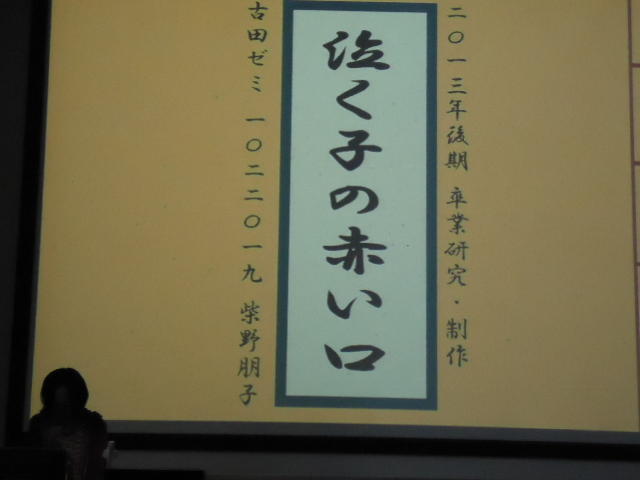 二〇一三年後期 卒業研究・制作
泣く子の赤い口
古田ゼミ 一〇二二〇一九 柴野朋子